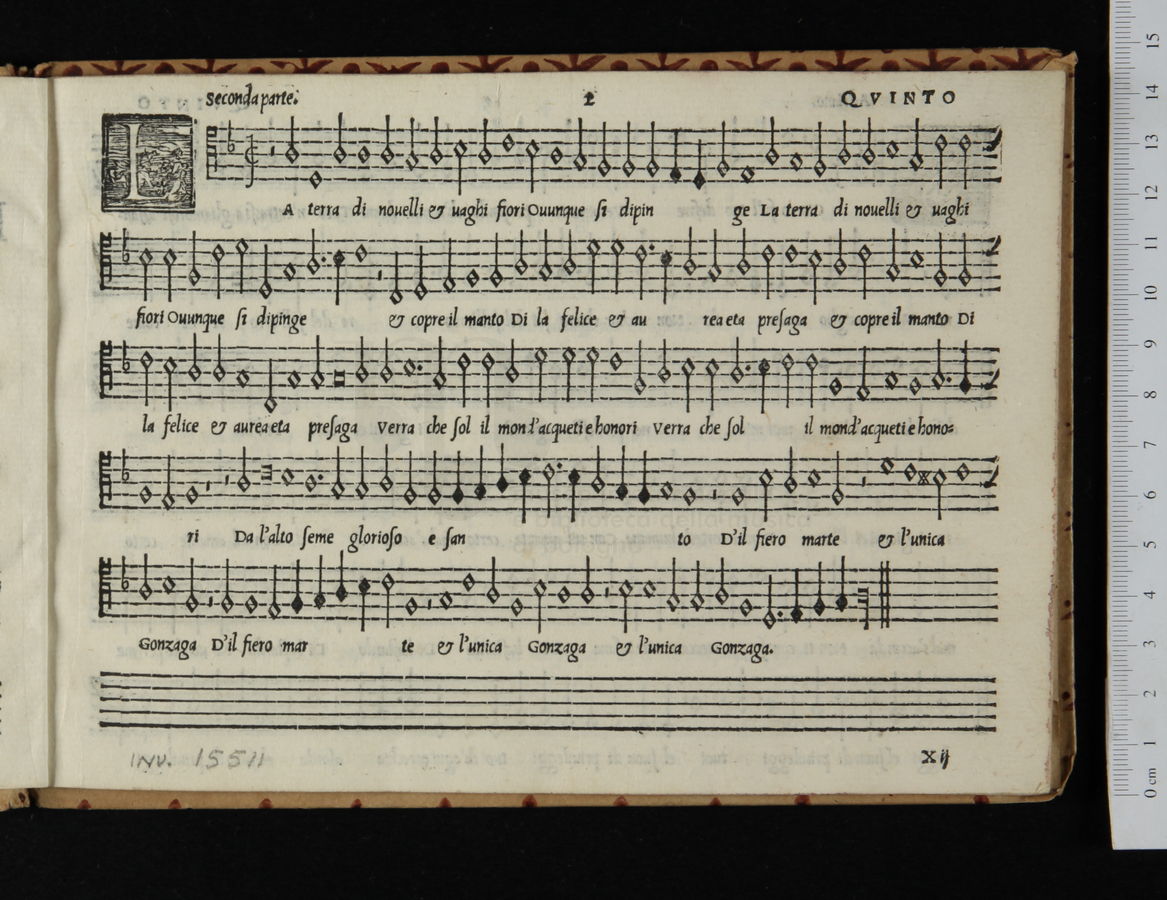 Seconda parte. 2 QVINTO
LA terra di nouelli & uaghi fiori Ouunque ſi dipin ge La terra di nouelli & uaghi
fiori Ouunque ſi dipinge & copre il manto Di la felice & au rea eta preſaga & copre il manto Di
la felice & aurea eta preſaga Verra che ſol il mond'acqueti e honori Verra che ſol il mond'acqueti e hono=
ri Da l'alto ſeme glorioſo e ſan to D'il fiero marte & l'unica
Gonzaga D'il fiero mar te & l'unica Gonzaga & l'unica Gonzaga.
INV. 15511
X ij
0 cm 1 2 3 4 5 6 7 8 9 10 11 12 13 14 15